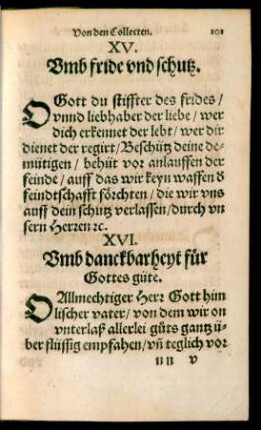 Von den Collecten. 101
XV.
Vmb fride vnd schutz.
O Gott du stiffter des frides /
vnnd liebhaber der liebe / wer
dich erkennet der lebt / wer dir
dienet der regirt / Beschütz deine de-
mütigen / behüt vor anlauffen der
feinde / auff das wir keyn waffen d
feindtschafft förchten / die wir vns
auff dein schutz verlassen / durch vn
sern Herren ꝛc.
XVI.
Vmb danckbarheyt für
Gottes güte.
O Allmechtiger Herr Gott him
lischer vater / von dem wir on
vnterlaß allerlei güts gantz ü-
ber flüssig empfahen / vñ teglich vor
nn v